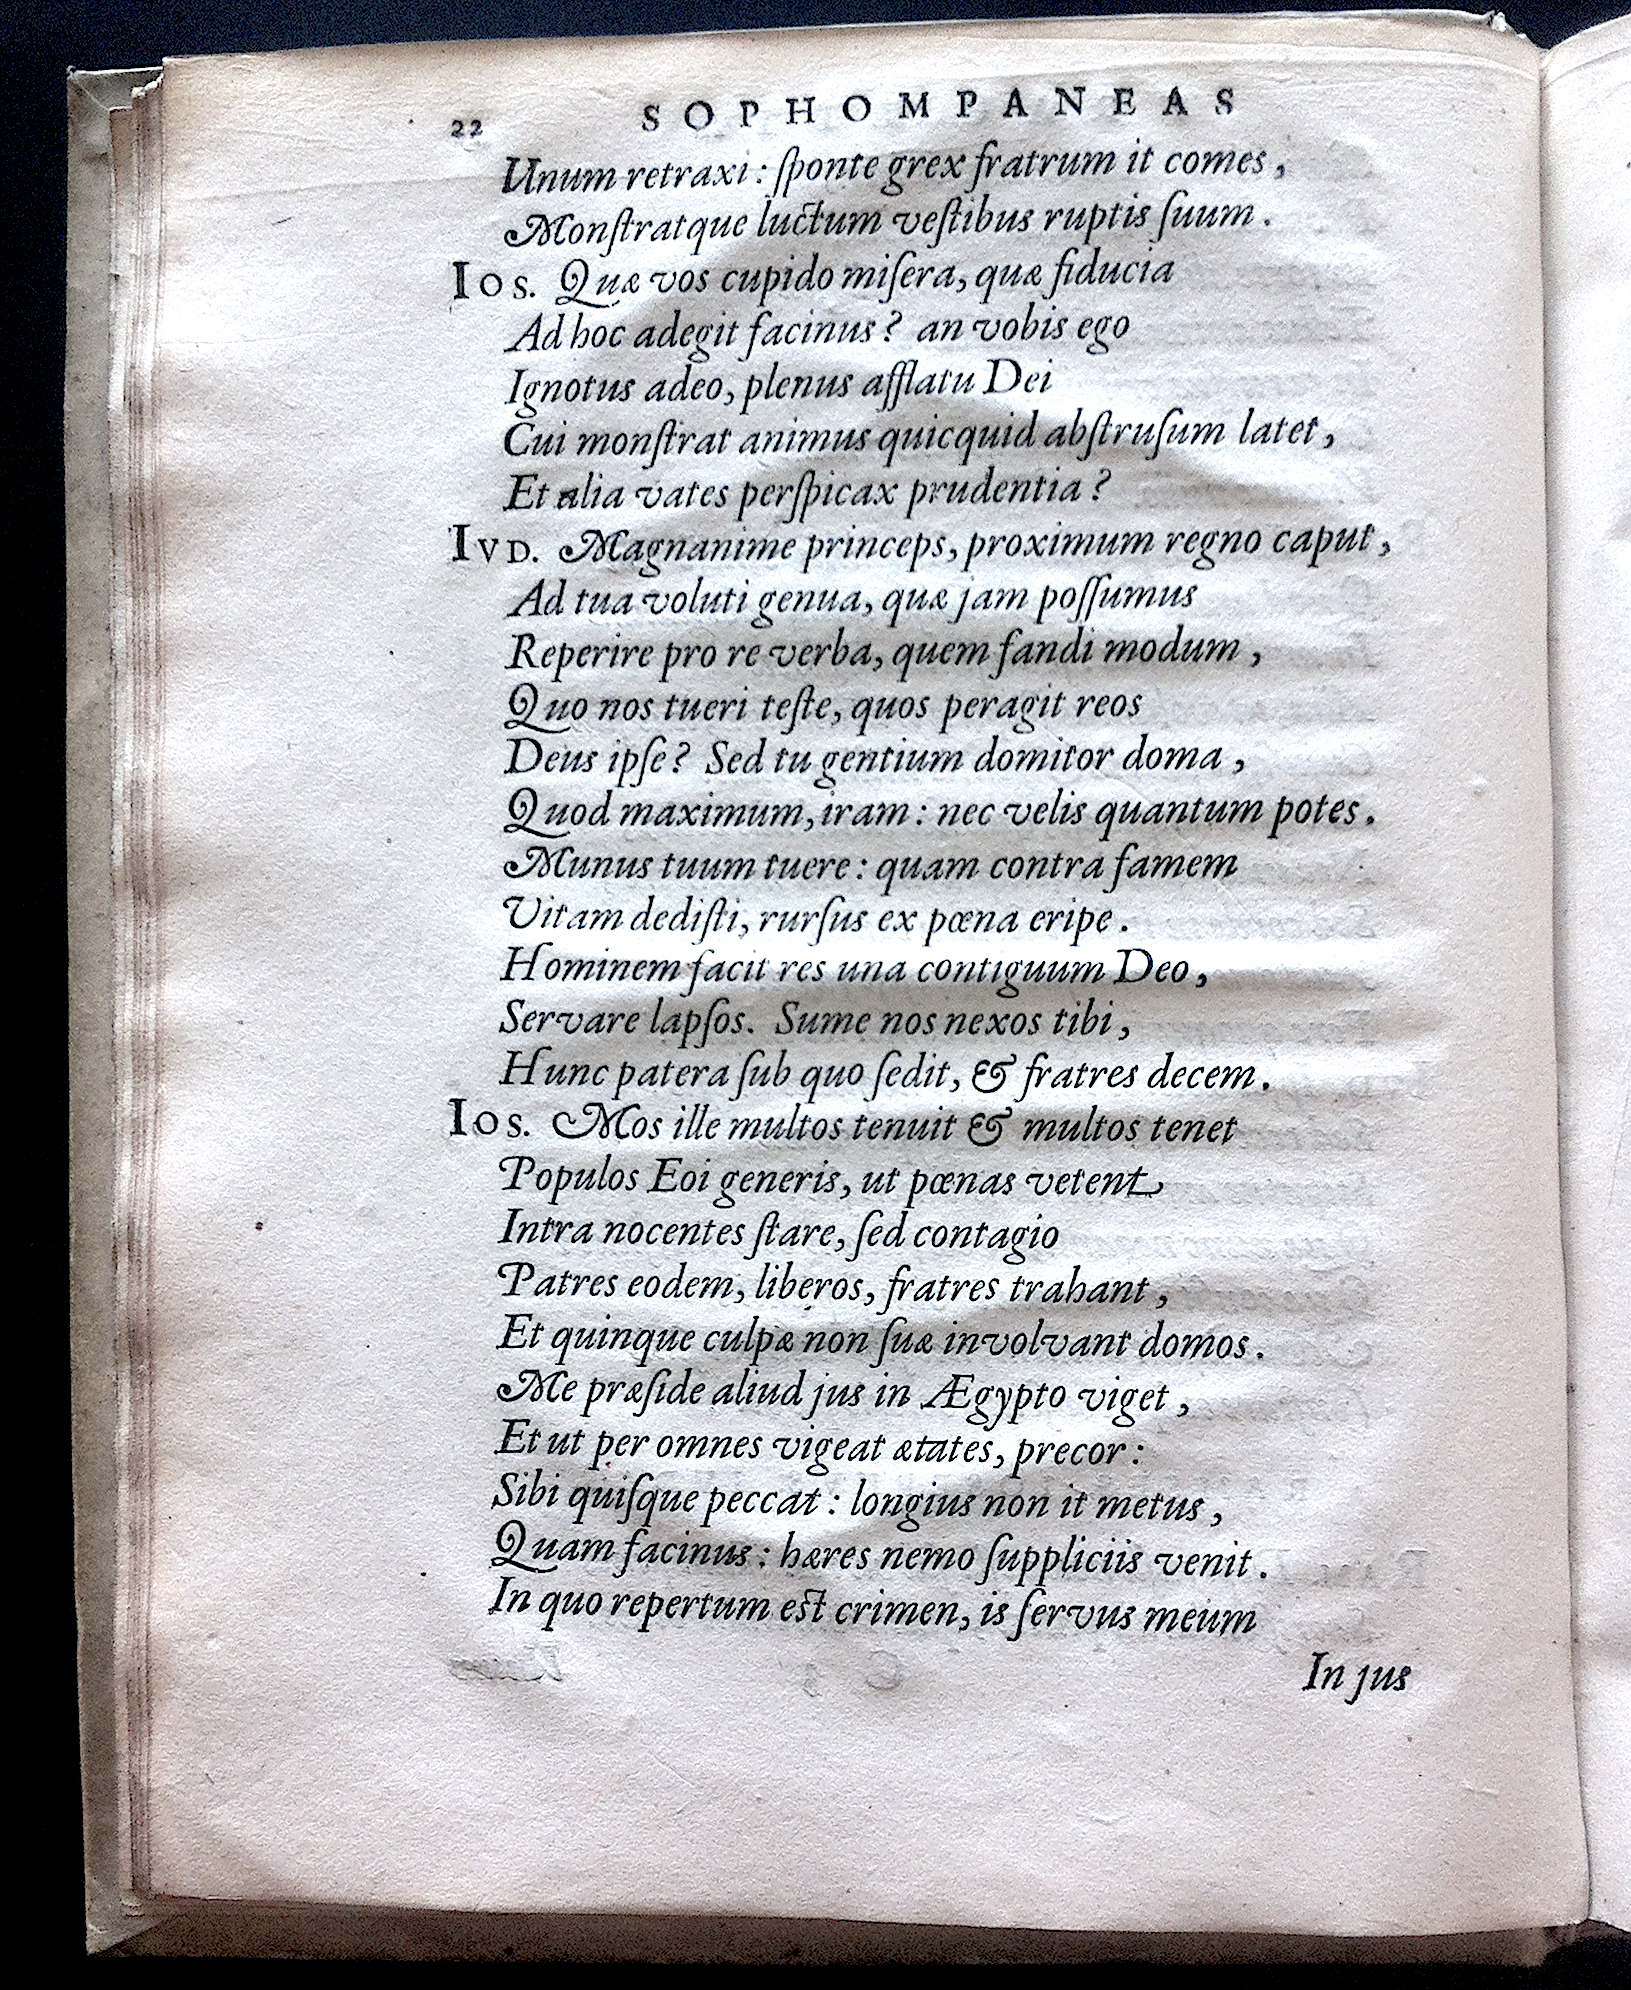 22 SOPHOMPANEAS
Unum retraxi: ſponte grex fratrum it comes,
Monſtratque luctum veſtibus ruptis ſuum.
IOS. Quæ vos cupido miſera, quæ fiducia
Ad hoc adegit facinus? an vobis ego
Ignotus adeo, plenus afflatu Dei
Cui monſtrat animus quicquid abſtruſum latet,
Et alia vates perſpicax prudentia?
IVD. Magnanime princeps, proximum regno caput,
Ad tua voluti genua, quæ jam poſſumus
Reperire pro re verba, quem fandi modum,
Quo nos tueri teſte, quos peragit reos
Deus ipſe? Sed tu gentium domitor doma,
Quod maximum, iram: nec velis quantum potes.
Munus tuum tuere: quam contra famem
Vitam dediſti, rurſus ex pœna eripe.
Hominem facit res una contiguum Deo,
Servare lapſos. Sume nos nexos tibi,
Hunc patera ſub quo ſedit, & fratres decem.
IOS. Mos ille multos tenuit & multos tenet
Populos Eoi generis, ut pœnas vetent
Intra nocentes ſtare, ſed contagio
Patres eodem, liberos, fratres trahant,
Et quinque culpæ non ſuæ involvant domos.
Me præſide aliud jus in Ægypto viget,
Et ut per omnes vigeat ætates, precor:
Sibi quiſque peccat: longius non it metus,
Quam facinus: hæres nemo ſuppliciis venit.
In quo repertum est crimen, is ſervus meum
In jus